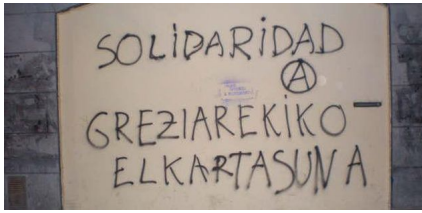 SOLIDARIDAD
Ⓐ
GREZIAREKIKO
ELKARTASUNA